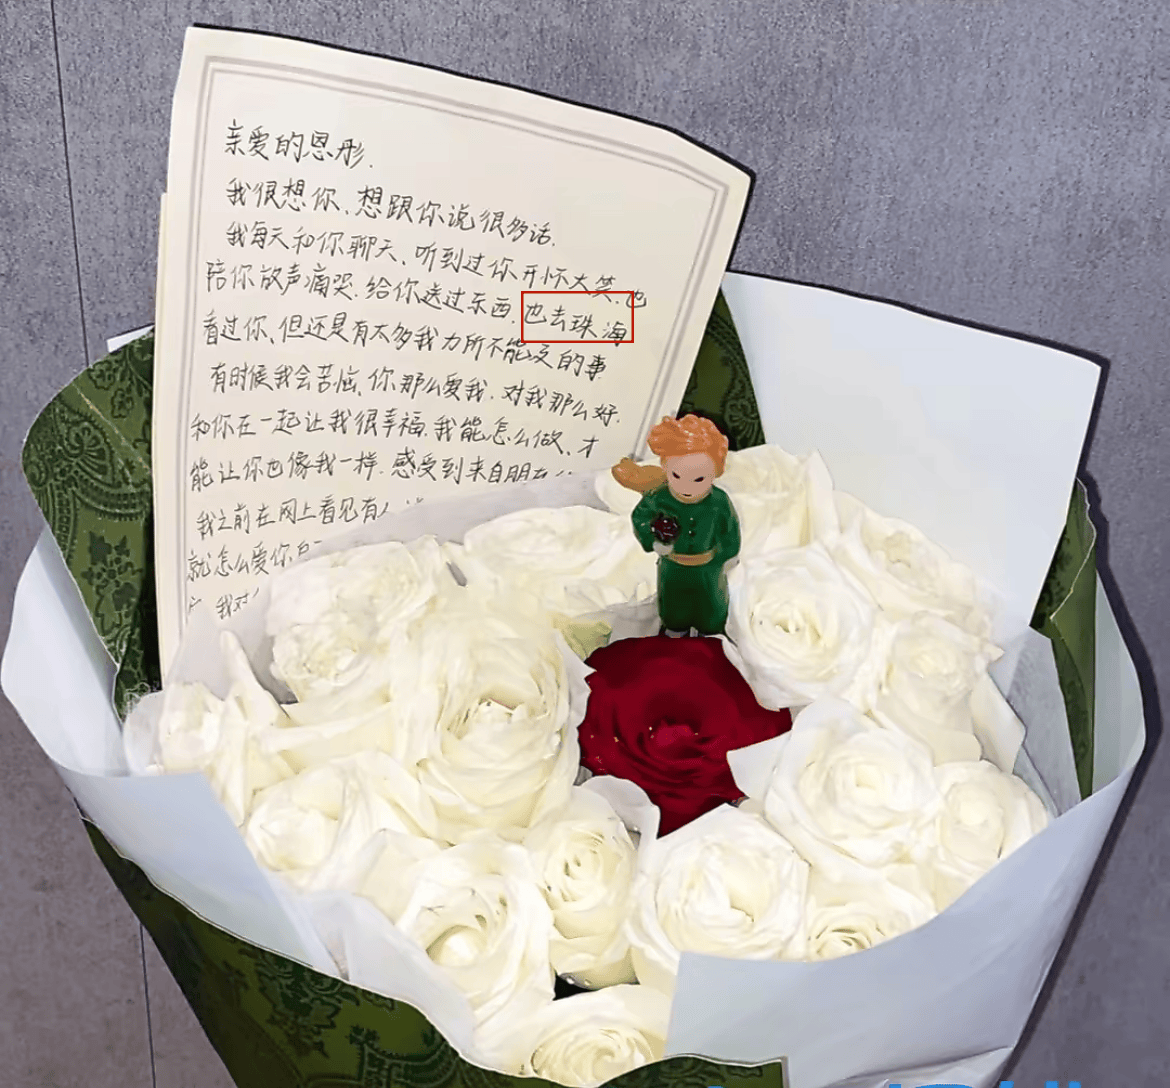 亲爱的恩彤.
我很想你、想跟你说很多话.
我每天和你聊天、听到过你开怀大笑.也
陪你放声痛哭.给你送过东西.也去珠海
看过你、但还是有太多我力所不能及的事
有时候我会苦恼、你那么爱我.对我那么好.
和你在一起让我很幸福.我能怎么做、才
能让你也像我一样.感受到来自朋友
我之前在网上看见有人
就怎么爱你自
我对